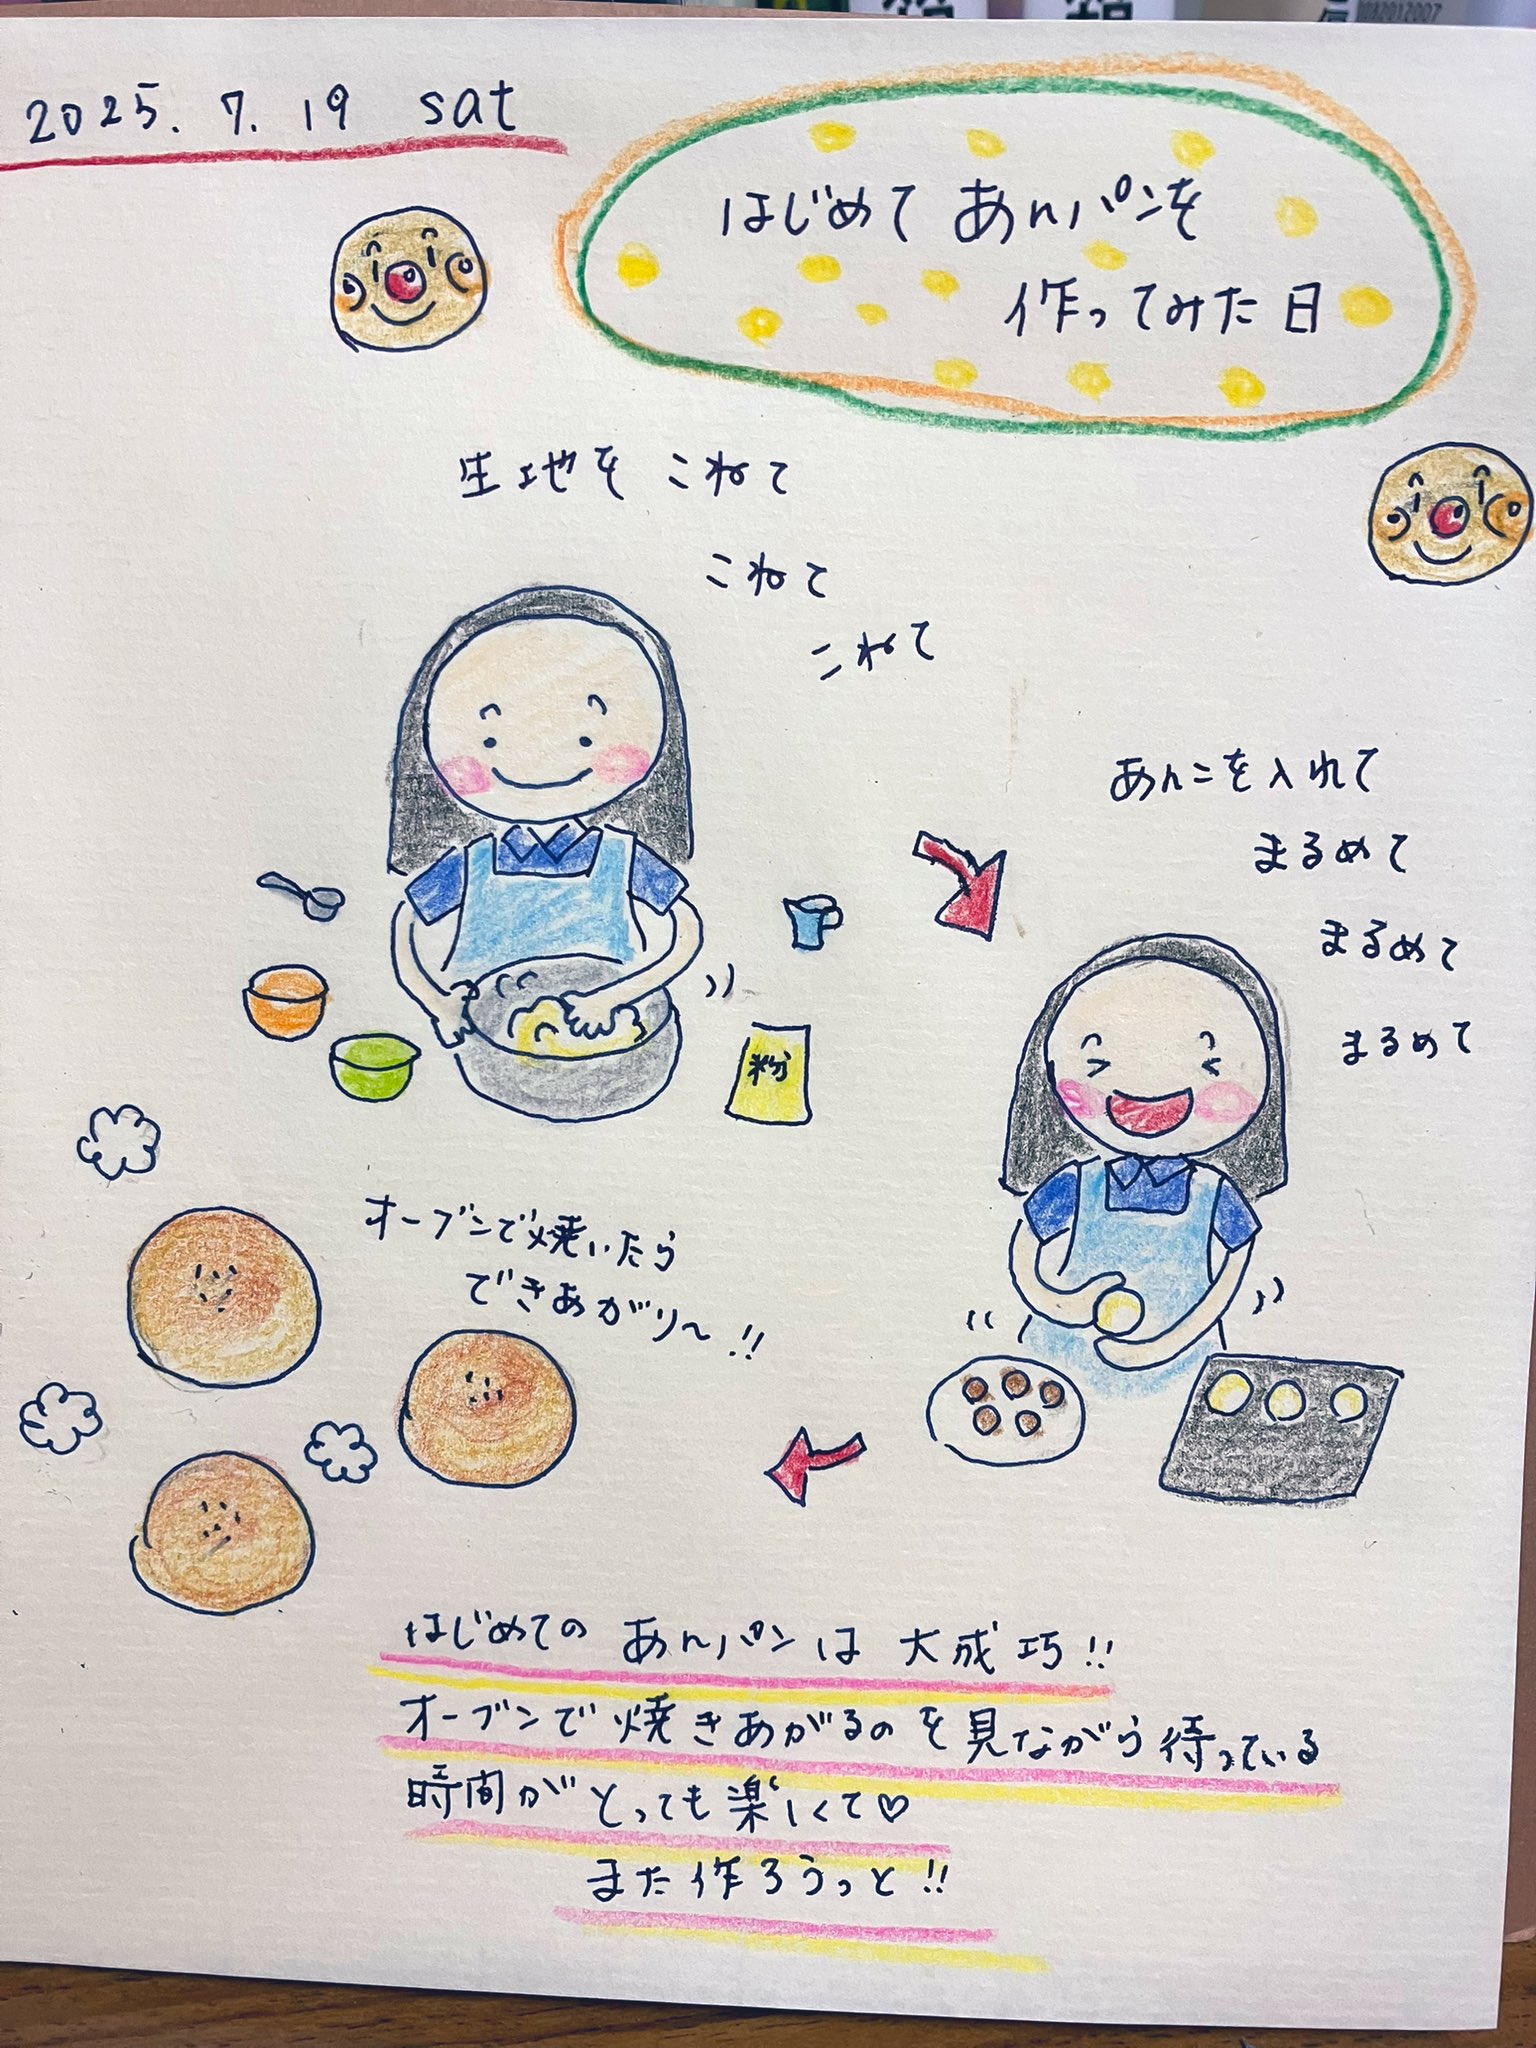 2025.7.19 sat
はじめて あんパンを
作ってみた日
生地を こねて
こねて
こねて
あんこを入れて
まるめて
まるめて
まるめて
粉
オーブンで焼いたら
できあがり〜!!
はじめての あんパンは 大成功!!
オーブンで焼きあがるのを見ながら待っている
時間が とっても楽しくて♡
また作ろうっと!!